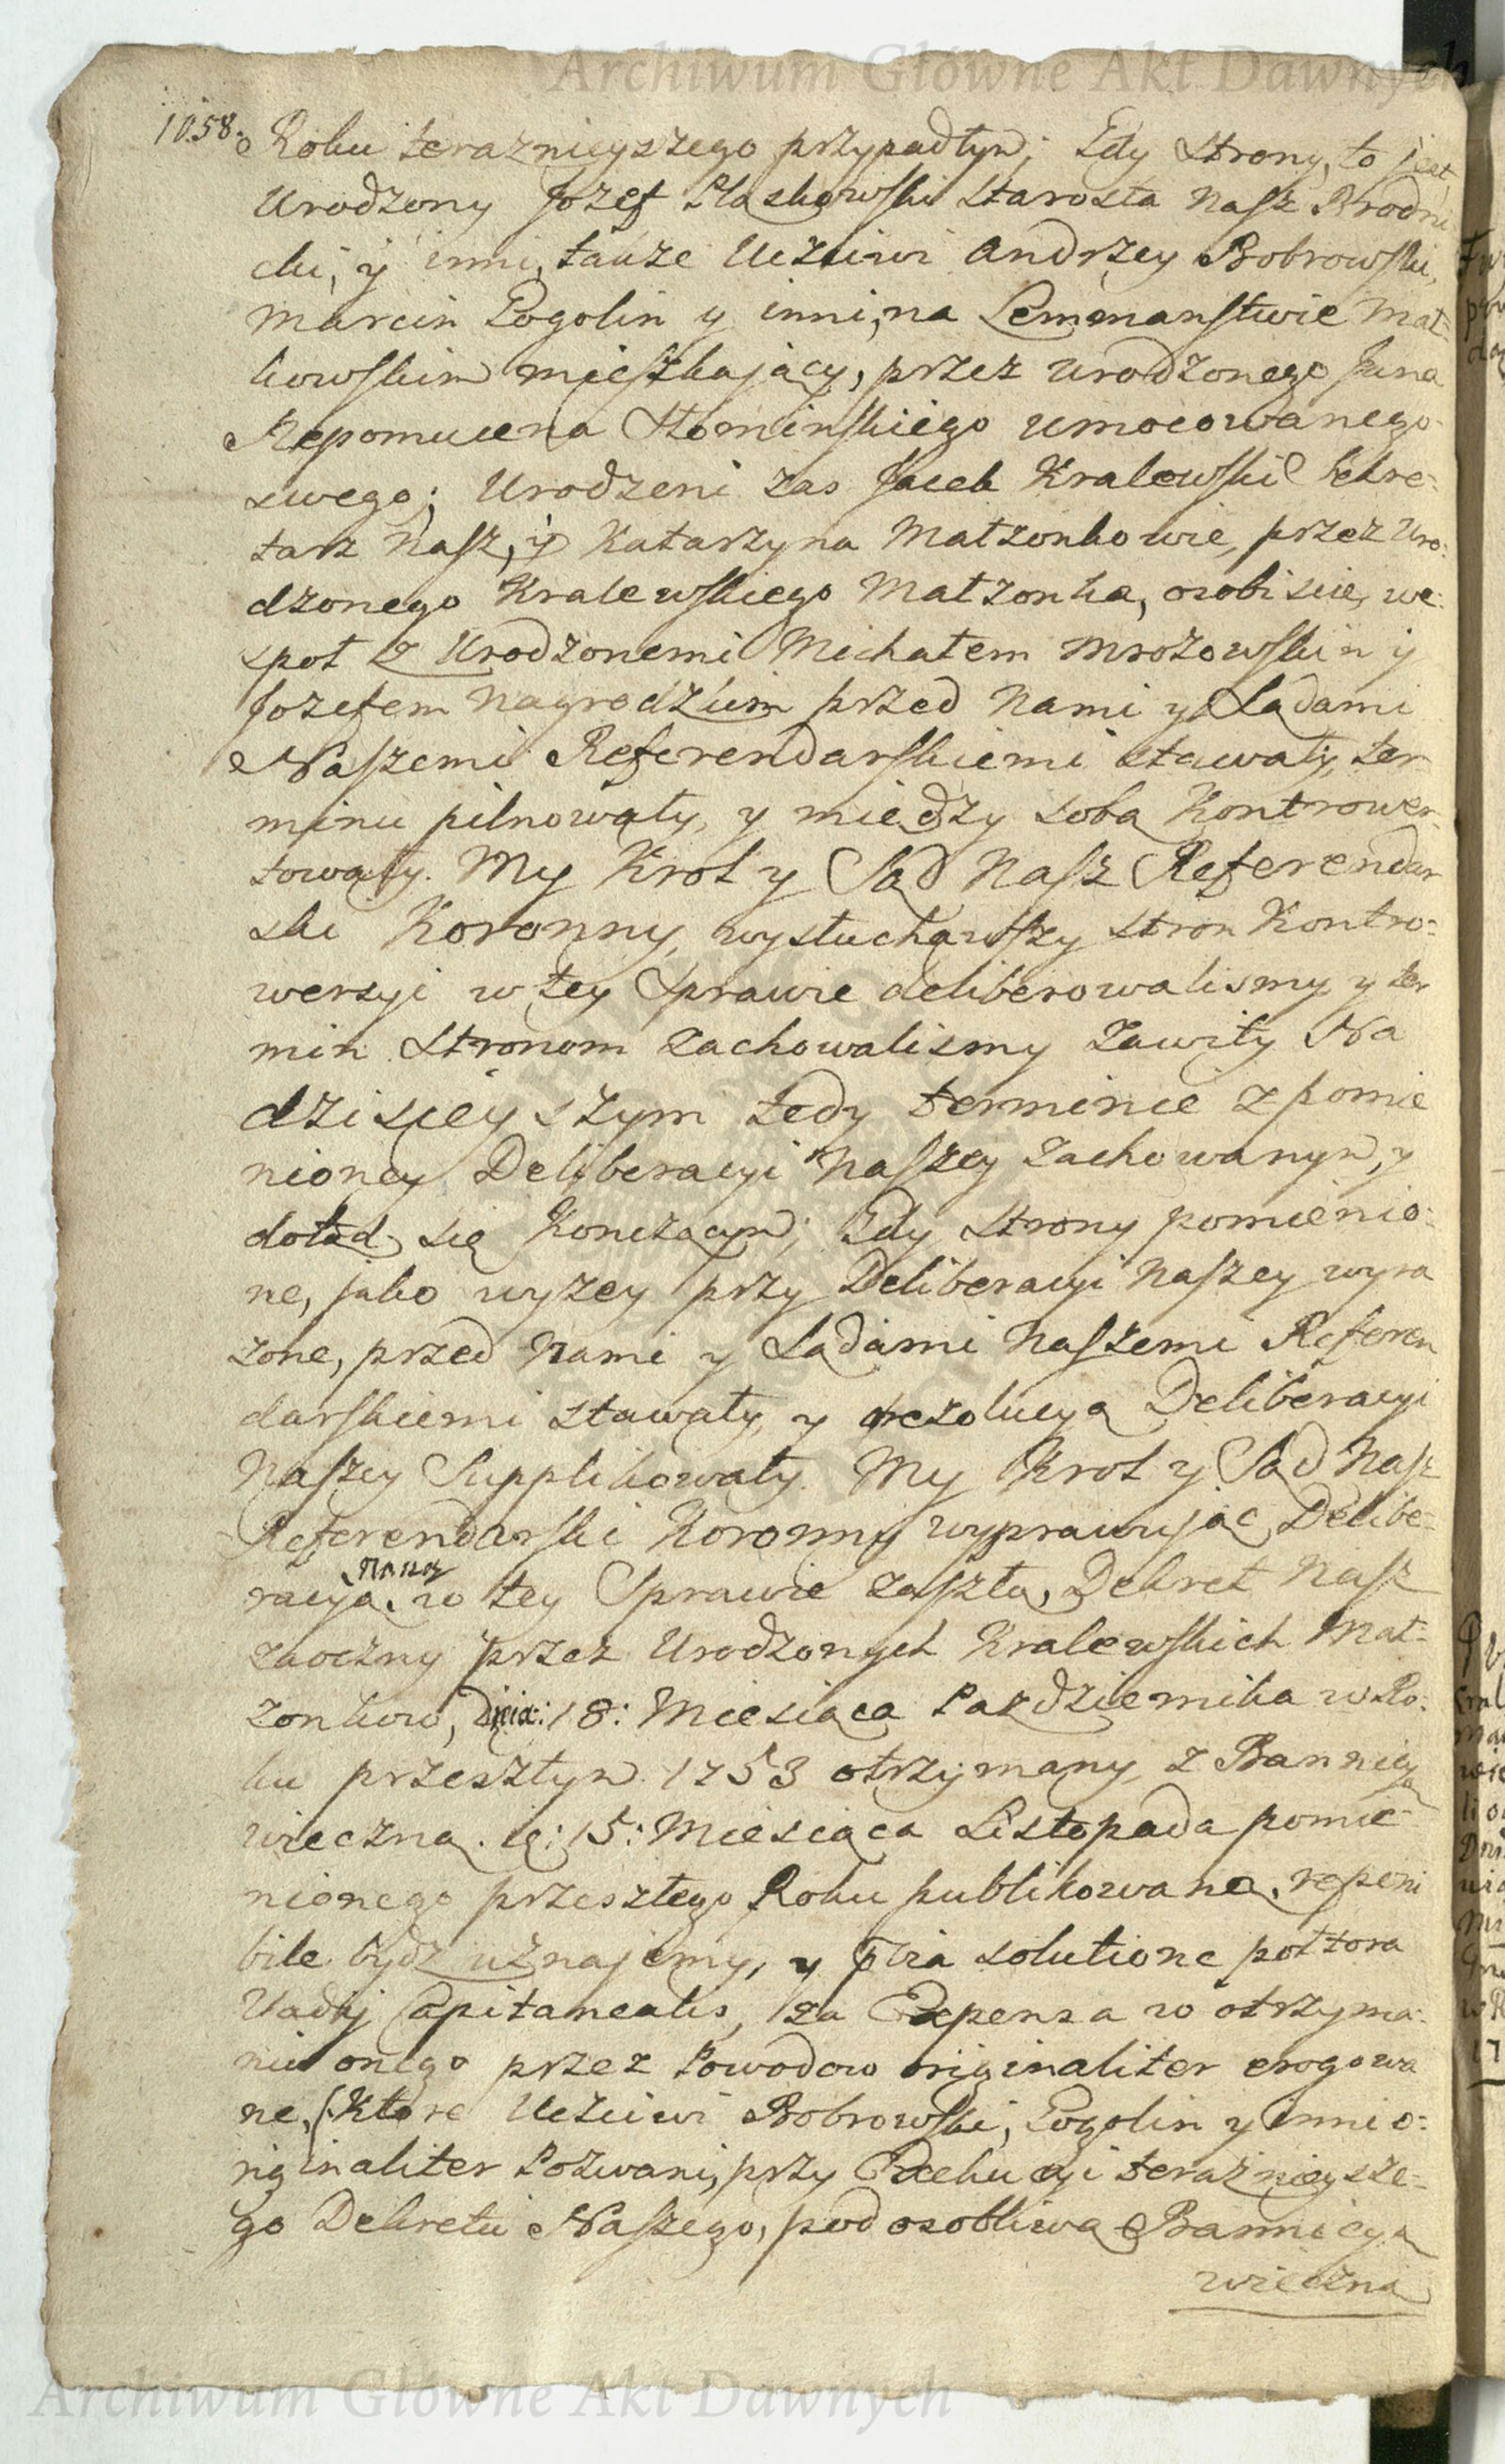 Archiwum Główne Akt Dawnych
1058.
Roku teraznieyszego przypadłym; Gdy Strony, to jest
Urodzony Jozef Pląskowski Starosta Nasz Brodni
cki, y inni, także Uczciwi Andrzey Bobrowski,
Marcin Gogolin y inni, na Lemmanstwie Mał-
kowskim mieszkaiący, przez Urodzonego Jana
Nepomucena Słominskiego umocowanego
swego; Urodzeni zas Jacek Kralewski Sekre-
tarz Nasz, y Katarzyna Małzonkowie, przez Uro-
dzonego Kralewskiego Małzonka, osobiscie, we-
społ z Urodzonemi Michałem Mrozowskim y
Jozefem Nagrodzkim przed Nami y Sądami
Naszemi Referendarskiemi stawały, ter-
minu pilnowały, y między sobą Kontrower-
towały. My Krol y Sąd Nasz Referendar
ski Koronny, wysłuchawszy stron Kontro-
wersyi w tey Sprawie deliberowalismy y ter
min Stronom zachowalismy zawiły Na
dzisieyszym tedy terminie z pomie
nioney Deliberacyi Naszey zachowanym, y
dotąd się Konczącym; Gdy Strony pomienio-
ne, jako wyzey przy Deliberacyi Naszey wyra
zone, przed Nami y Sądami Naszemi Referen
darskiemi stawały, y rezolucyą Deliberacyi
Naszey Supplikowały. My Krol y Sąd Nasz
Referendarski Koronny wyprawując Delibe-
racyą Naszą w tey Sprawie zaszłą, Dekret Nasz
zaoczny przez Urodzonych Kralewskich Mał-
zonkow, Dnia: 18: Miesiąca Pazdziernika w Ro-
ku przeszłym 1753 otrzymany, z Bannicyą
wieczną. d: 15: Miesiąca Listopada pomie-
nionego przeszłego Roku publikowaną, reponi
bile bydz uznajemy, y pria solutione połtora
Vadij Capitanealis, za Expensa w otrzyma-
niu onego przez Powodow originaliter erogowa
ne, (Ktore Uczciwi Bobrowski, Gogolin y inni o-
riginaliter Pozwani, przy Exekucyi teraznieysze-
go Dekretu Naszego, pod osobliwą Bannicyą
wieczną
Archiwum Główne Akt Dawnych